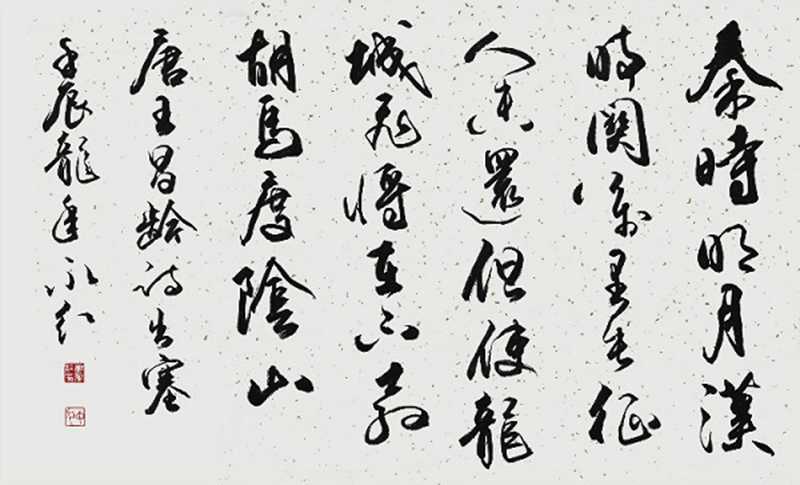 秦時明月漢
時關萬里長征
人未還但使龍
城飛將在不教
胡馬度陰山
唐王昌齡詩出塞
壬辰龍年永紅